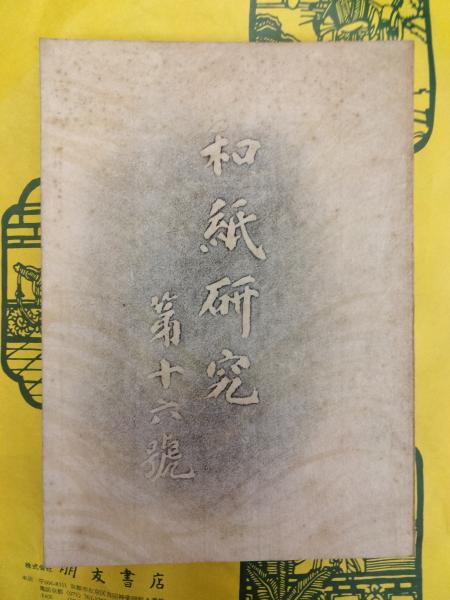 和紙研究
第十六號
株式会社 朋友書店